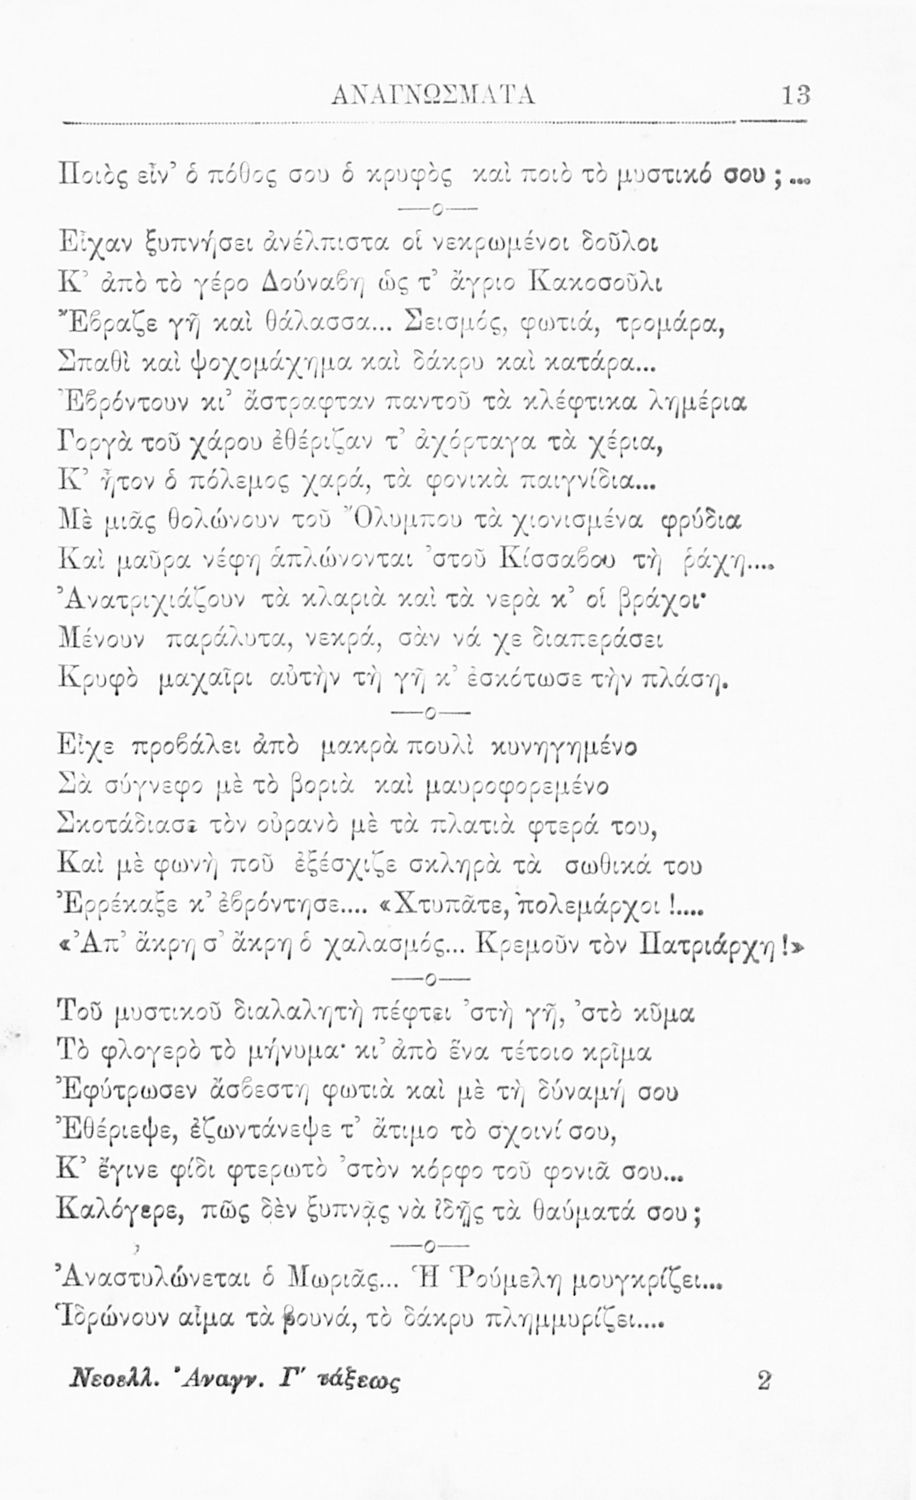 ΑΝΑΓΝΩΣΜΑΤΑ 13
Ποιὸς εἶν’ ὁ πόθος σου ὁ κρυφὸς καὶ ποιὸ τὸ μυστικό σου ;...
—ο—
Εἶχαν ξυπνήσει ἀνέλπιστα οἱ νεκρωμένοι δοῦλοι
Κ’ ἀπὸ τὸ γέρο Δούναβη ὡς τ’ ἄγριο Κακοσοῦλι
Ἔβραζε γῆ καὶ θάλασσα... Σεισμός, φωτιά, τρομάρα,
Σπαθὶ καὶ ψοχομάχημα καὶ δάκρυ καὶ κατάρα...
Ἐβρόντουν κι’ ἄστραφταν παντοῦ τὰ κλέφτικα λημέρια
Γοργὰ τοῦ χάρου ἐθέριζαν τ’ ἀχόρταγα τὰ χέρια,
Κ’ ἦτον ὁ πόλεμος χαρά, τὰ φονικὰ παιγνίδια...
Μὲ μιᾶς θολώνουν τοῦ Ὄλυμπου τὰ χιονισμένα φρύδια
Καὶ μαῦρα νέφη ἁπλώνονται ’στοῦ Κίσσαβου τὴ ῥάχη....
Ἀνατριχιάζουν τὰ κλαριὰ καὶ τὰ νερὰ κ’ οἱ βράχοι·
Μένουν παράλυτα, νεκρά, σὰν νά χε διαπεράσει
Κρυφὸ μαχαῖρι αὐτὴν τὴ γῆ κ’ ἐσκότωσε τὴν πλάση.
—ο—
Εἶχε προβάλει ἀπὸ μακρὰ πουλὶ κυνηγημένο
Σὰ σύγνεφο μὲ τὸ βοριὰ καὶ μαυροφορεμένο
Σκοτάδιασε τὸν οὐρανὸ μὲ τὰ πλατιὰ φτερά του,
Καὶ μὲ φωνὴ ποῦ ἐξέσχιζε σκληρὰ τὰ σωθικά του
Ἐρρέκαξε κ’ ἐβρόντησε.... «Χτυπᾶτε, πολεμάρχοι !....
«Ἀπ’ ἄκρη σ’ ἄκρη ὁ χαλασμός... Κρεμοῦν τὸν Πατριάρχη !»
—ο—
Τοῦ μυστικοῦ διαλαλητὴ πέφτει ’στὴ γῆ, ’στὸ κῦμα
Τὸ φλογερὸ τὸ μήνυμα· κι’ ἀπὸ ἕνα τέτοιο κρῖμα
Ἐφύτρωσεν ἄσβεστη φωτιὰ καὶ μὲ τὴ δύναμή σου
Ἐθέριεψε, ἐζωντάνεψε τ’ ἄτιμο τὸ σχοινί σου,
Κ’ ἔγινε φίδι φτερωτὸ ’στὸν κόρφο τοῦ φονιᾶ σου...
Καλόγερε, πῶς δὲν ξυπνᾷς νὰ ἰδῇς τὰ θαύματά σου ;
—ο—
Ἀναστυλώνεται ὁ Μωριᾶς... Ἡ Ῥούμελη μουγκρίζει...
Ἱδρώνουν αἷμα τὰ βουνά, τὸ δάκρυ πλημμυρίζει....
Νεοελλ. Ἀναγν. Γ′ τάξεως 2